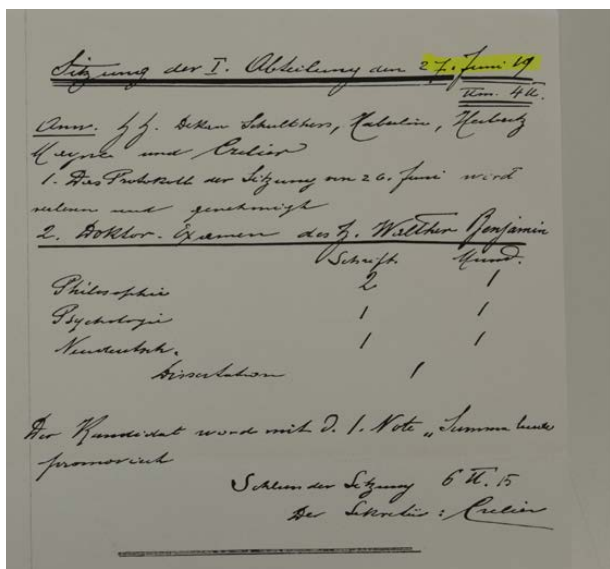 Sitzung der I. Abteilung den 27. Juni 19
Um. 4 U.
Anw. HH. Dekan Schulthess, Häberlin, Herbertz
Maync und Crelier
1. Das Protokoll der Sitzung von 26. Juni wird
verlesen und genehmigt
2. Doktor-Examen des H. Walther Benjamin
Schrift. Mund.
Philosophie 2 1
Psychologie 1 1
Neudeutsch. 1 1
Dissertation 1
Der Kandidat wurde mit d. 1. Note „Summa laude
promoviert
Schluss der Sitzung 6 U. 15
Der Sekretär: Crelier